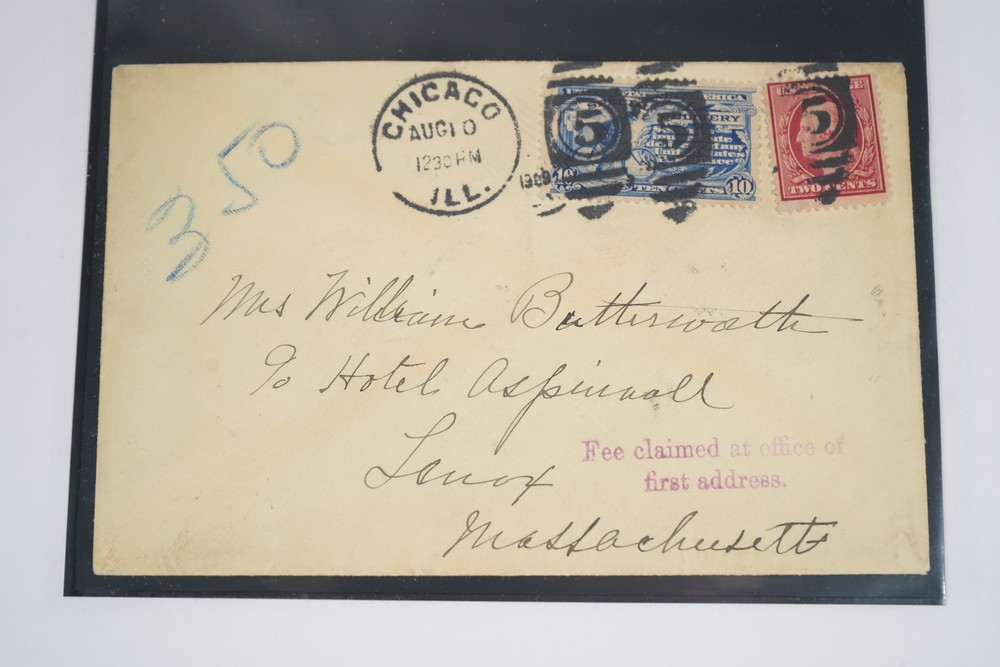 CHICAGO
AUG 10
12 30 PM
ILL.
1909
5 5 5
TEN CENTS 10
TWO CENTS
350
Mrs William Butterworth
c/o Hotel Aspinwall
Lenox
Massachusetts
Fee claimed at office of
first address.